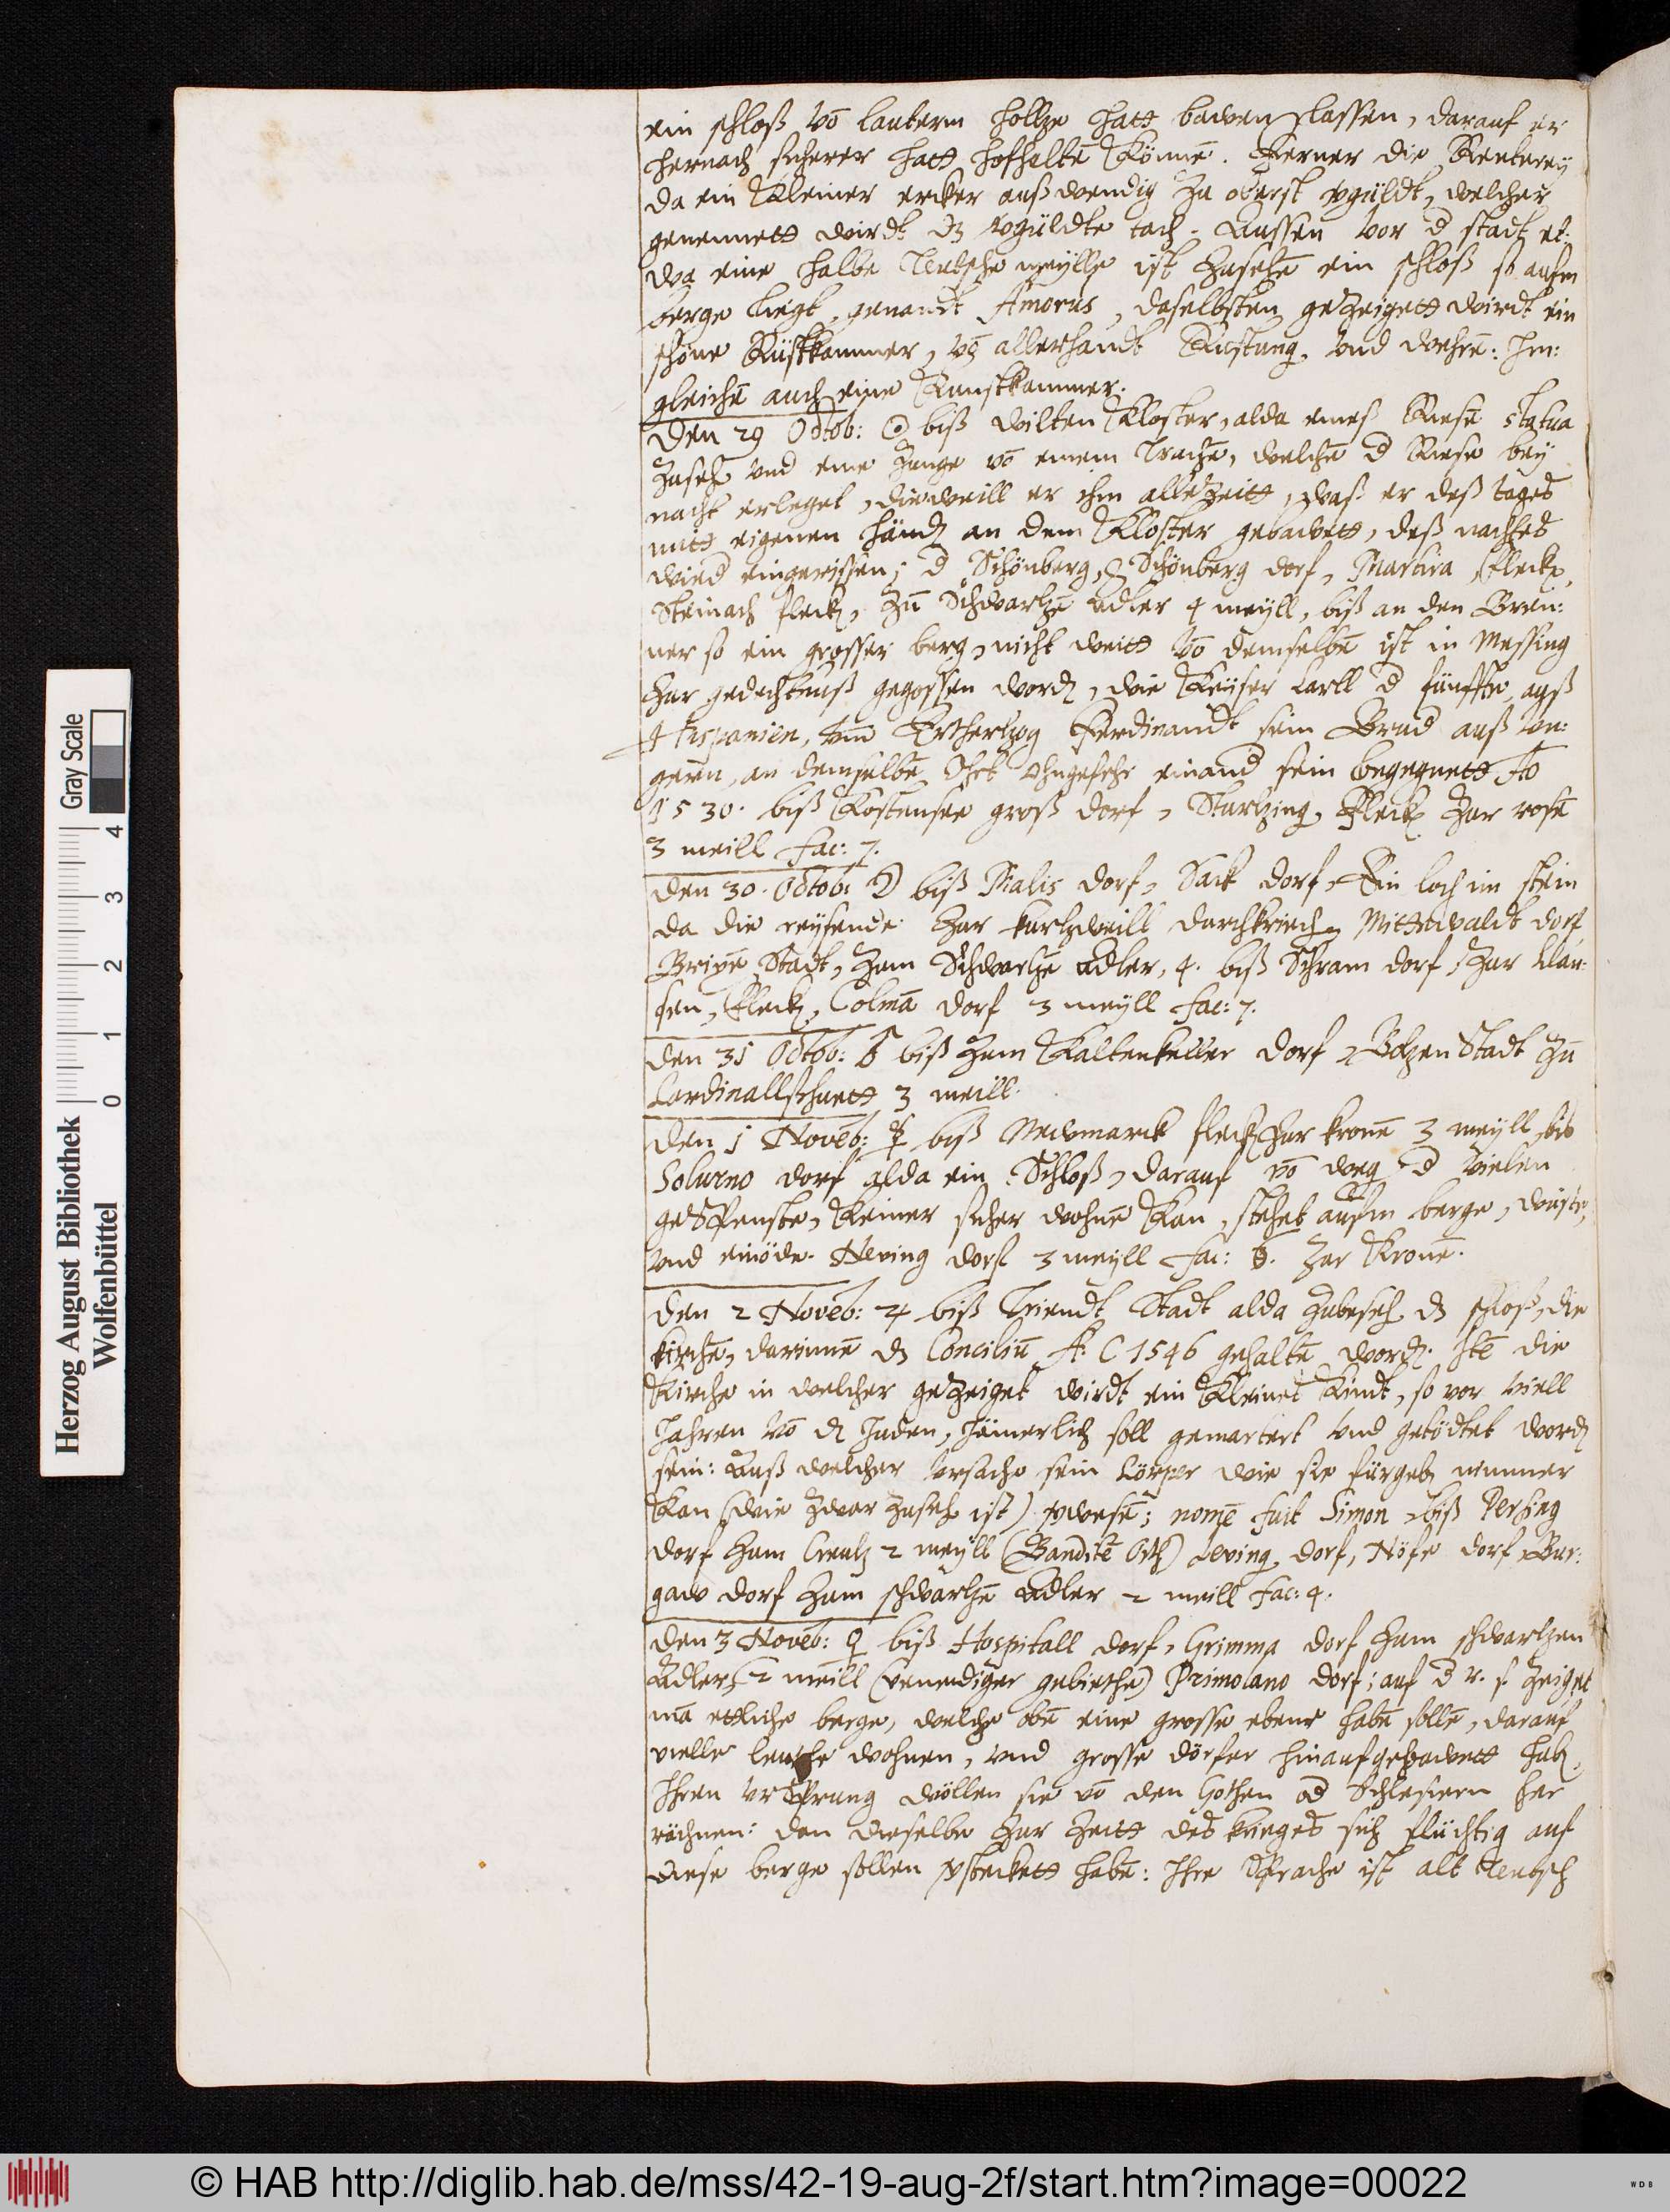 ein schloß vō lauterm holtze hatt bawen lassen, darauf er
hernach sicherer hatt hofhaltē können. Ferner die Renterey
da ein kleiner ercker außwendig zu oberst vgüldt, welcher
genennett wirdt dz vgüldte tach. Aussen vor d stadt et:
wa eine halbe Teutsche meylle ist zusehē ein schloß so aufm
berge liegt, genandt Amorus, daselbsten gezeigett wirdt ein
schöne Rüstkammer, vō allerhandt Rüstung, vnd wehrē: Im:
gleichē auch eine Kunstkammer.
Den 29 Octob: ☉ biß wilten Kloster, alda eines Riesē statua
zuseh vnd eine zunge vō einem Trachē, welchē d Riese bey
nacht erleget, dieweill er ihm allezeitt, waß er deß tages
mitt eigenen händ an dem Kloster gebawett, deß nachtes
wied eingerissen; d Schönberg, Schönberg dorf, Martira fleck,
Steinach fleck, zū Schwartzē adler 4 meyll, biß an den Bren:
ner so ein grosser berg, nicht weitt vō demselbē ist in Messing
zur gedechtnuß gegossen word, wie Keyser Carll d fünffte auß
Hispanien, vnd Ertzhertzog Ferdinandt sein Brud auß Un:
gern, an demselbē Ohrt ohngefehr einand sein begegnett Ao
1530. biß Kostensee groß dorf, Startzing, fleck zur rosē
3 meill fac: 7.
Den 30. Octob: ☽ biß Malis dorf, Sack dorf, Ein loch im stein
da die reysende zur kurtzweill durchkriech, Mittewaldt dorf
Brixē Stadt, zum Schwartzē adler, 4. biß Schram dorf, zur Clau:
sen, fleck, Colmā dorf 3 meyll fac: 7.
Den 31 Octob: ♂ biß zum Kaltenkeller dorf, Botzen Stadt zū
Cardinallshuett 3 meill.
Den 1 Novēb: ☿ biß Newmarck fleck zur kronē 3 meyll, bis
Solurno dorf alda ein Schloß, darauf vō weg d vielen
gespenste, keiner sicher wohnē kan, stehet aufm berge, wüste,
vnd einöde. Neving dorf 3 meyll fac: 6. zur Kronē.
Den 2 Novēb: ♃ biß Triendt Stadt alda zubeseh dz schloß, die
kirchē, darinnē dz Conciliū A. C 1546 gehaltē word. Itē die
Kirche in welcher gezeiget wirdt ein kleines Kindt, so vor viell
Jahren vō d Juden, Jämerlich soll gemartert vnd getödtet word
sein: Auß welcher vrsache sein Cörper wie sie fürgeb nimmer
kan (wie zwar zuseh ist) vwesē; nomē fuit Simon, biß Persing
dorf zum Creutz 2 meyll (Banditē Orth) Leving dorf, Nöfe dorf, Bur:
gaw dorf zum schwartzē Adler 2 meill fac: 4.
Den 3 Novēb: ♀ biß Hospitall dorf, Grimma dorf zum schwartzen
Adler, 2 meill (venediger gebiethe) Primolano dorf; auf d r. s. zeiget
mā ettliche berge, welche obē eine grosse ebene habē sollē, darauf
vielle leuthe wohnen, vnd grosse dörfer hinaufgebawett hab,
Ihren vrsprung wöllen sie vō den Gothen od Schlesiern her
rächnen: den dieselbe zur zeitt des krieges sich flüchtig auf
diese berge sollen vsteckett habē: Ihre Sprache ist alt Teutsch
© HAB http://diglib.hab.de/mss/42-19-aug-2f/start.htm?image=00022
Herzog August Bibliothek
Wolfenbüttel
Gray Scale
0 1 2 3 4
WDB